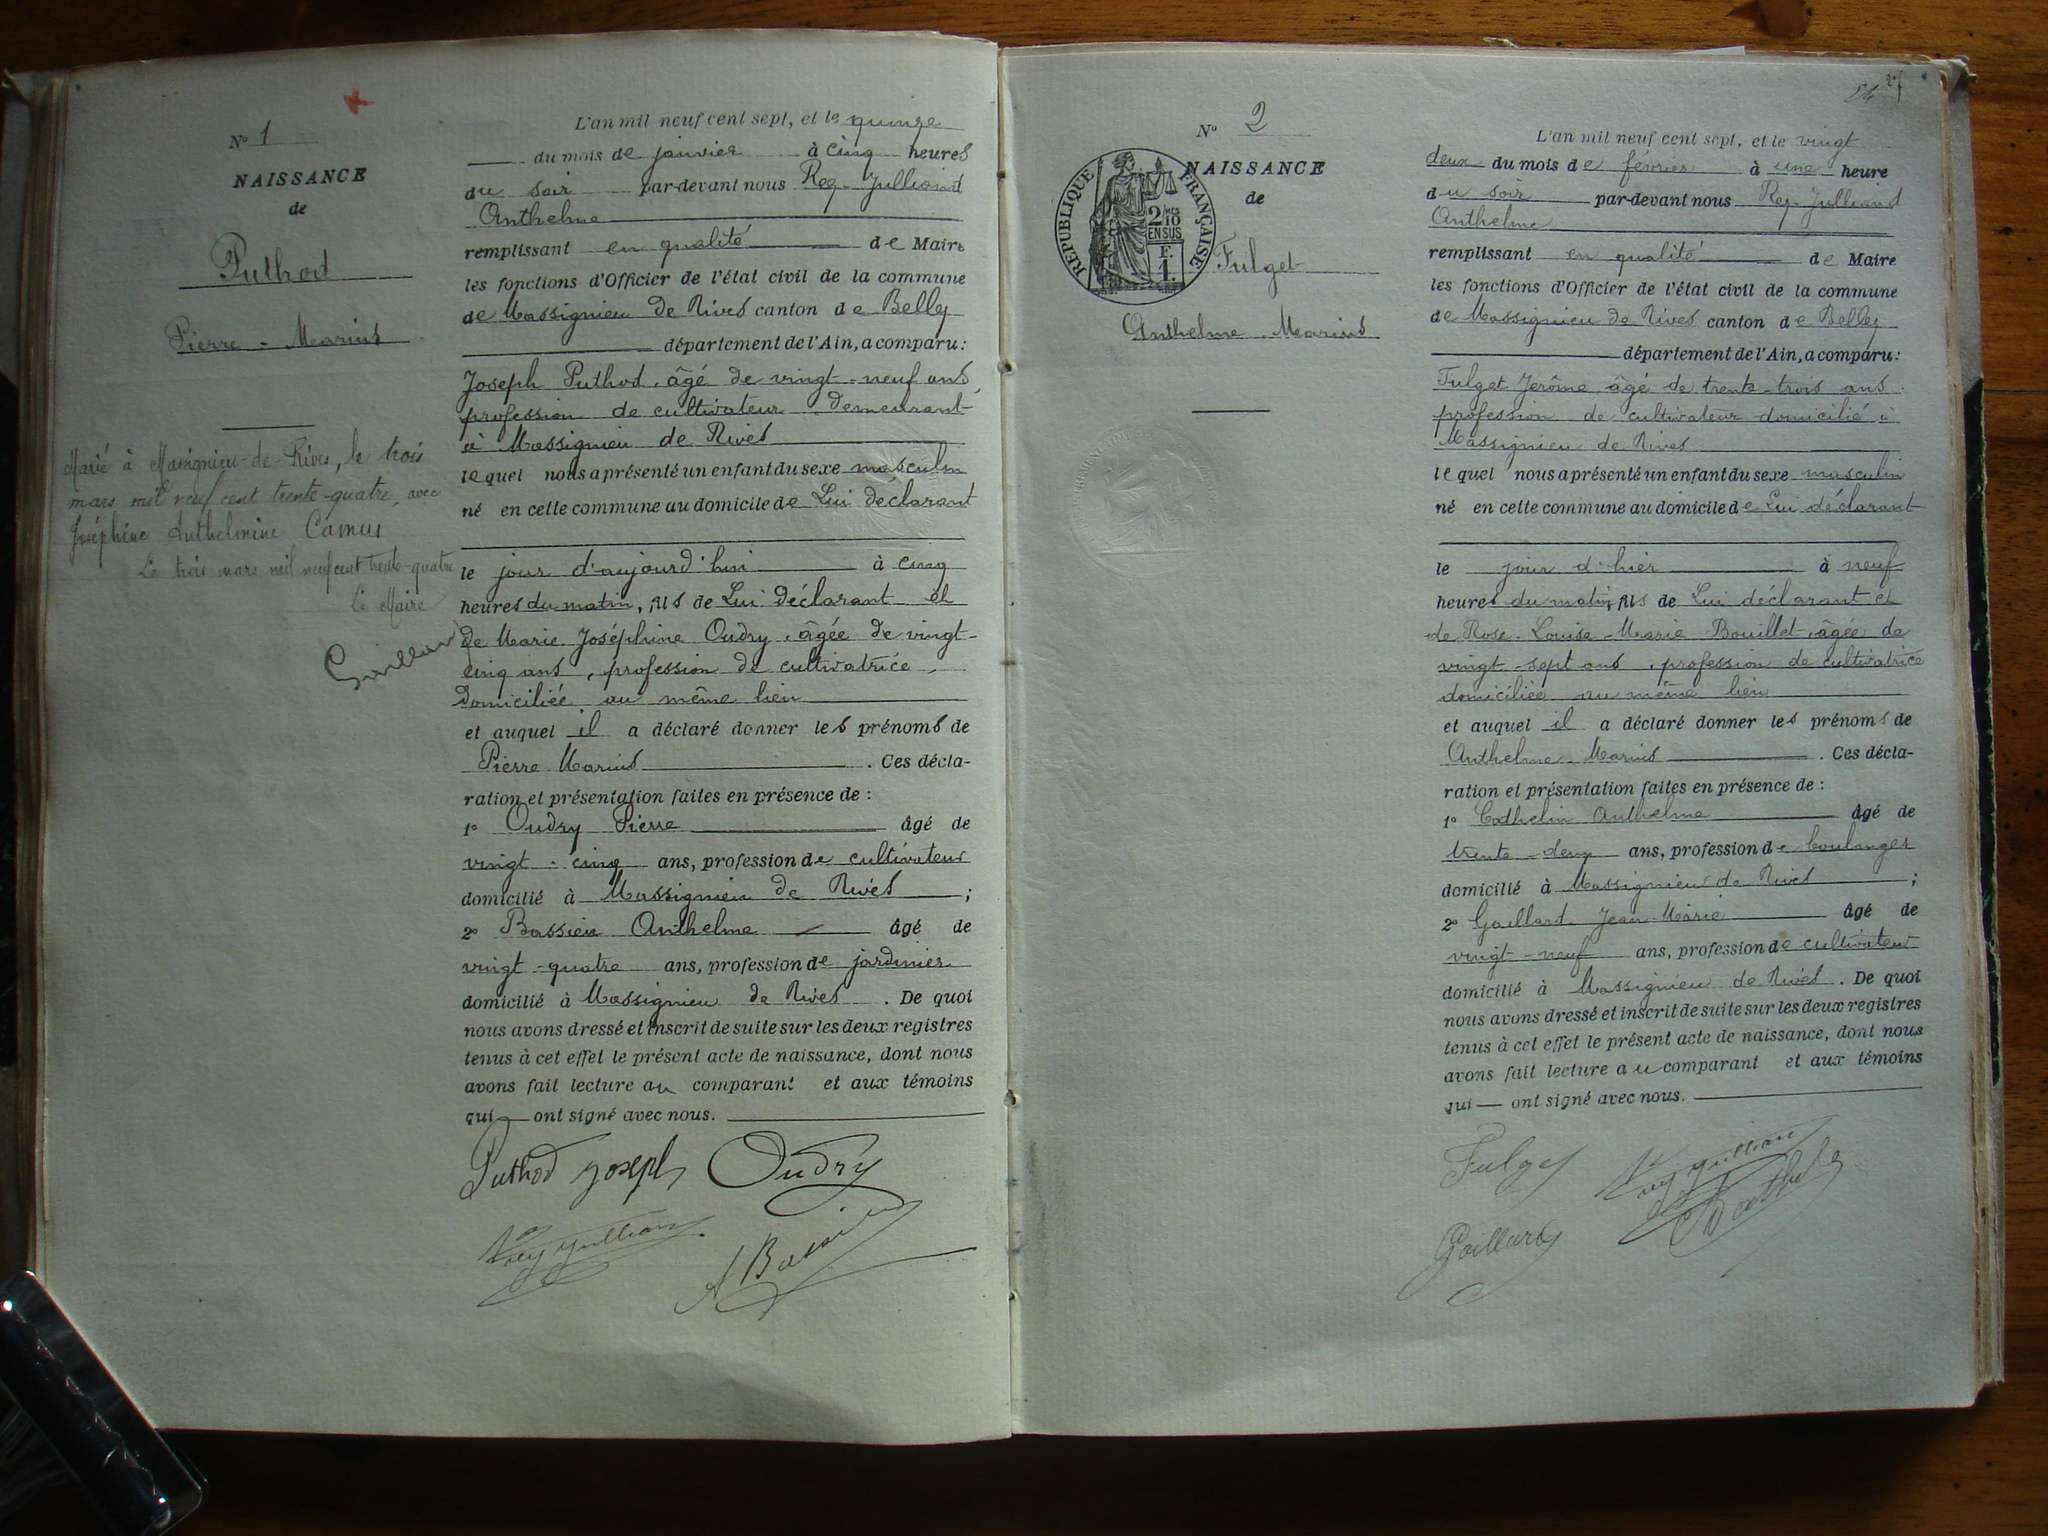 N° 1
NAISSANCE
de
Puthod
Pierre - Marius
Marié à Massignieu-de-Rives, le trois
mars mil neuf cent trente-quatre, avec
Joséphine Anthelmine Camus
Le trois mars mil neuf cent trente-quatre
Le Maire
L'an mil neuf cent sept, et le quinze
du mois de janvier à cinq heures
du soir par-devant nous Rey-Julliand
Anthelme
remplissant en qualité de Maire
les fonctions d'Officier de l'état civil de la commune
de Massignieu de Rives canton de Belley
département de l'Ain, a comparu :
Joseph Puthod, âgé de vingt-neuf ans,
profession de cultivateur demeurant
à Massignieu de Rives
lequel nous a présenté un enfant du sexe masculin
né en cette commune au domicile de Lui déclarant
le jour d'aujourd'hui à cinq
heures du matin, fils de Lui déclarant et
de Marie Joséphine Oudry, âgée de vingt-
cinq ans, profession de cultivatrice,
domiciliée au même lieu
et auquel il a déclaré donner les prénoms de
Pierre Marius. Ces décla-
ration et présentation faites en présence de :
1° Oudry Pierre âgé de
vingt-cinq ans, profession de cultivateur
domicilié à Massignieu de Rives ;
2° Bassieu Anthelme âgé de
vingt-quatre ans, profession de jardinier
domicilié à Massignieu de Rives. De quoi
nous avons dressé et inscrit de suite sur les deux registres
tenus à cet effet le présent acte de naissance, dont nous
avons fait lecture au comparant et aux témoins
qui ont signé avec nous.
Puthod Joseph Oudry
Rey Julliand
A Bassieu
N° 2
NAISSANCE
de
RÉPUBLIQUE FRANÇAISE
2/10
EN SUS
F.
1
Fulget
Anthelme Marius
L'an mil neuf cent sept, et le vingt
deux du mois de février à une heure
du soir par-devant nous Rey-Julliand
Anthelme
remplissant en qualité de Maire
les fonctions d'Officier de l'état civil de la commune
de Massignieu de Rives canton de Belley
département de l'Ain, a comparu :
Fulget Jerôme âgé de trente-trois ans
profession de cultivateur domicilié à
Massignieu de Rives
lequel nous a présenté un enfant du sexe masculin
né en cette commune au domicile de Lui déclarant
le jour d'hier à neuf
heures du matin, fils de Lui déclarant et
de Rose-Louise-Marie Bouillet, âgée de
vingt-sept ans, profession de cultivatrice
domiciliée au même lieu
et auquel il a déclaré donner les prénoms de
Anthelme-Marius. Ces décla-
ration et présentation faites en présence de :
1° Cathelin Anthelme âgé de
trente-deux ans, profession de boulanger
domicilié à Massignieu de Rives ;
2° Gaillard Jean-Marie âgé de
vingt-neuf ans, profession de cultivateur
domicilié à Massignieu de Rives. De quoi
nous avons dressé et inscrit de suite sur les deux registres
tenus à cet effet le présent acte de naissance, dont nous
avons fait lecture au comparant et aux témoins
qui ont signé avec nous.
Fulget Rey Julliand
Gaillard